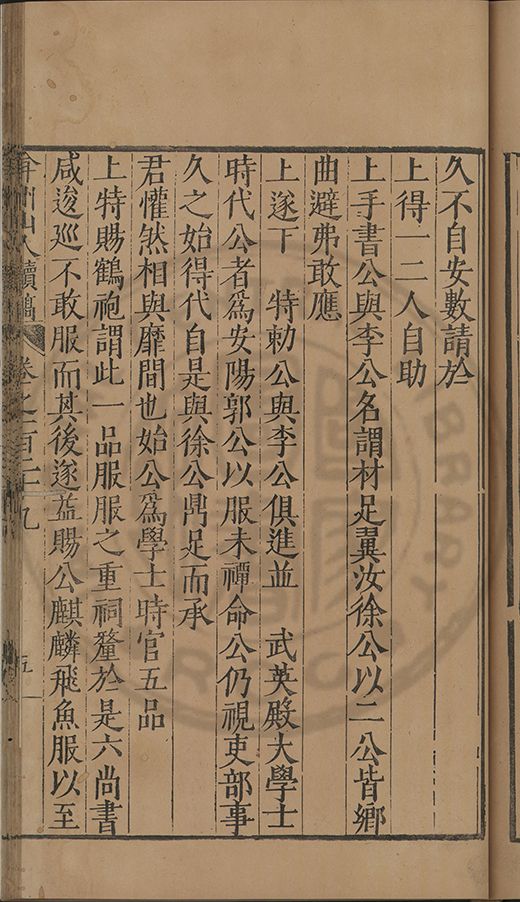 久不自安數請於
上得一二人自助
上手書公與李公名謂材足冀汝徐公以二公皆鄉
曲避弗敢應
上遂下　特勑公與李公俱進並　武英殿大學士
時代公者爲安陽郭公以服未禫命公仍視吏部事
久之始得代自是與徐公鼎足而承
君懽然相與靡間也始公爲學士時官五品
上特賜鶴袍謂此一品服服之重祠釐於是六尚書
咸逡巡不敢服而其後遂益賜公麒麟飛魚服以至
弇州山人續稿　卷之一百二十九　五